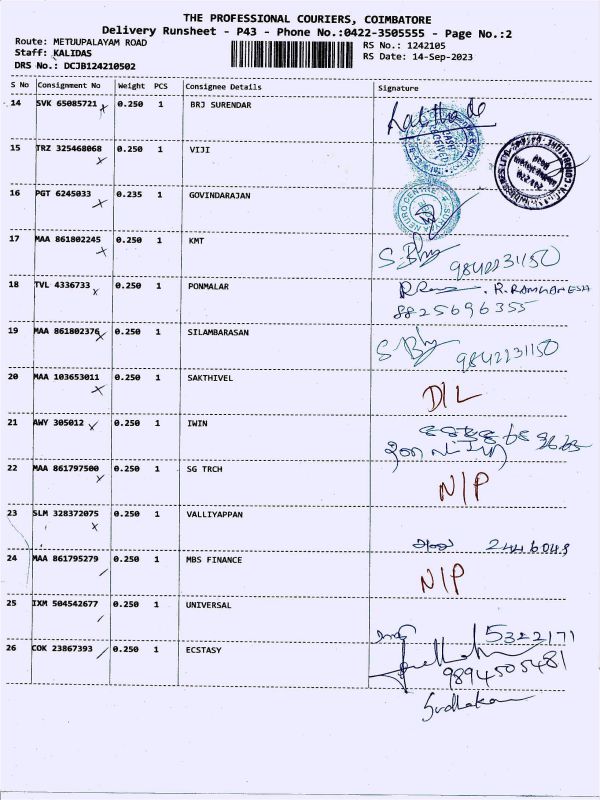 THE PROFESSIONAL COURIERS, COIMBATORE
Delivery Runsheet - P43 - Phone No.:0422-3505555 - Page No.:2
Route: METUUPALAYAM ROAD
RS No.: 1242105
Staff: KALIDAS
RS Date: 14-Sep-2023
DRS No.: DCJB124210502
S No Consignment No Weight PCS Consignee Details Signature
14 SVK 65085721 0.250 1 BRJ SURENDAR
15 TRZ 325468068 0.250 1 VIJI
16 PGT 6245033 0.235 1 GOVINDARAJAN
17 MAA 861802245 0.250 1 KMT
9842231150
18 TVL 4336733 0.250 1 PONMALAR
8825696355
19 MAA 861802376 0.250 1 SILAMBARASAN
9842231150
20 MAA 103653011 0.250 1 SAKTHIVEL
D/L
21 AWY 305012 0.250 1 IWIN
22 MAA 861797500 0.250 1 SG TRCH
N/P
23 SLM 328372075 0.250 1 VALLIYAPPAN
24 MAA 861795279 0.250 1 MBS FINANCE
N/P
25 IXM 504542677 0.250 1 UNIVERSAL
5322171
26 COK 23867393 0.250 1 ECSTASY
9894505481
Sudhakar